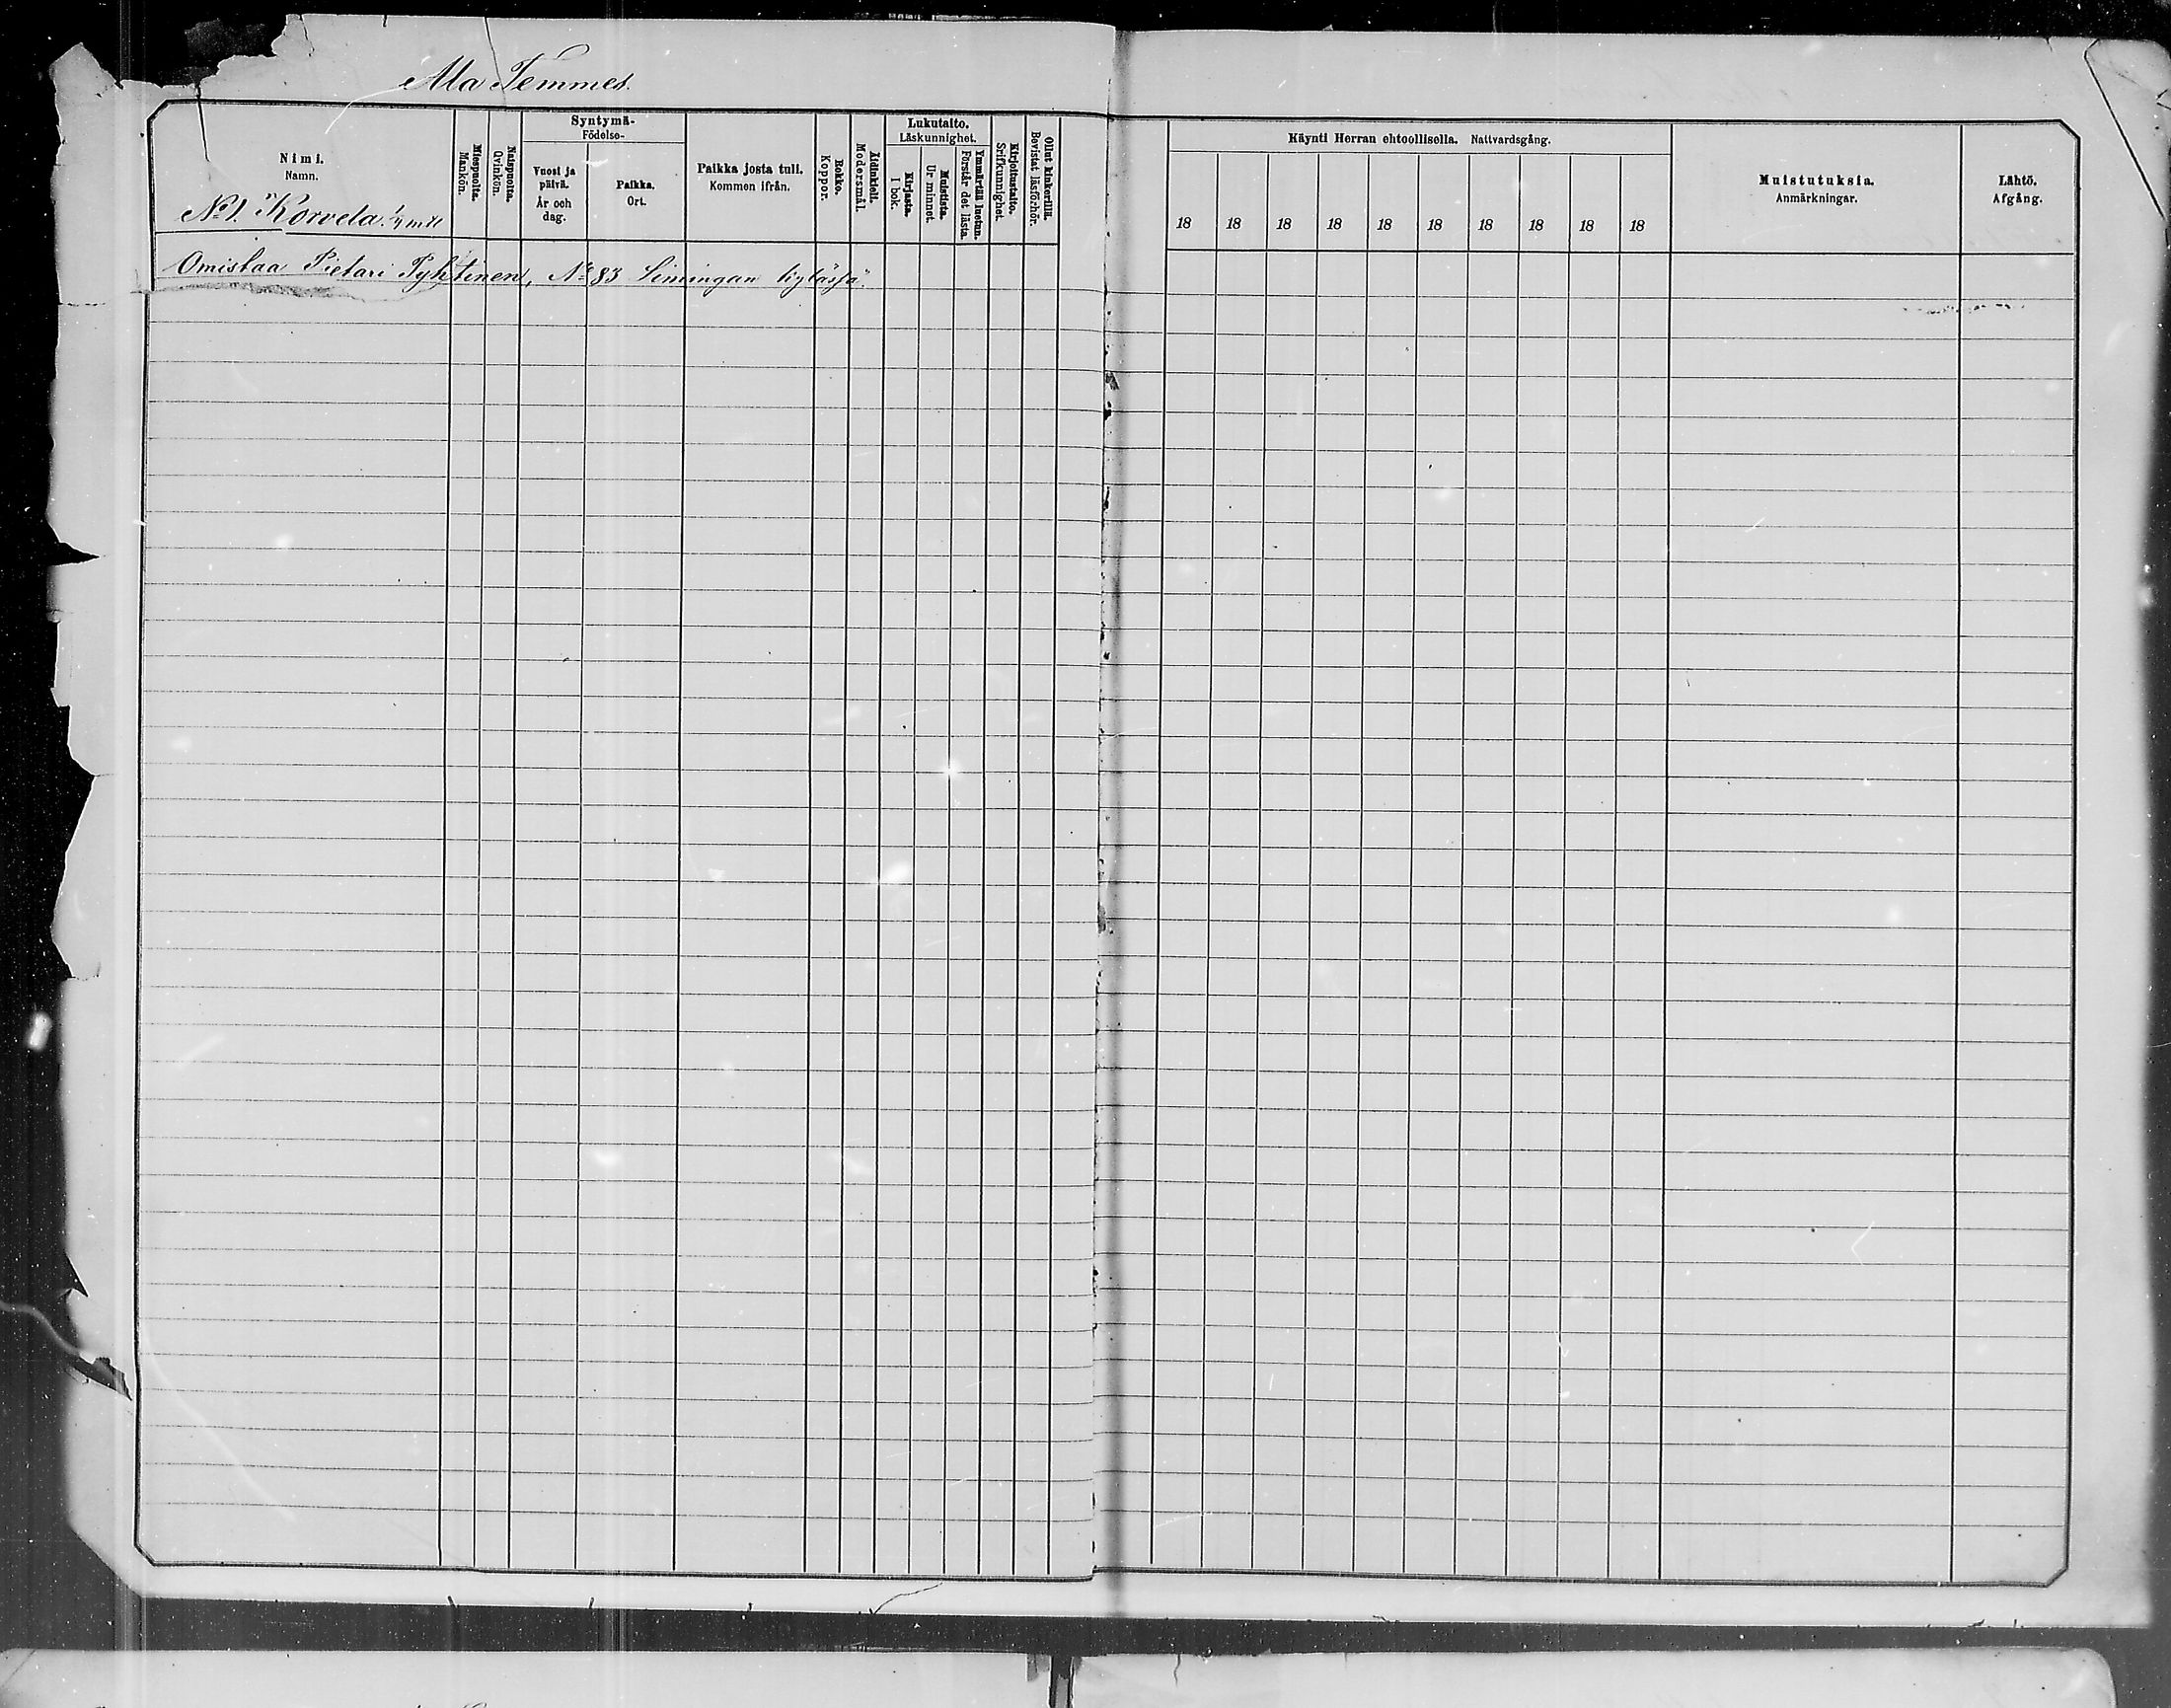 Ala Temmes.
Nimi.
Namn.
Miespuolta.
Mankön.
Naispuolta.
Qvinkön.
Syntymä-
Födelse-
Vuosi ja
päivä.
År och
dag.
Paikka.
Ort.
Paikka josta tuli.
Kommen ifrån.
Rokko.
Koppor.
Äidinkieli.
Modersmål.
Lukutaito.
Läskunnighet.
Kirjasta.
I bok.
Muistista.
Ur minnet.
Ymmärtää luetun.
Förstår det lästa.
Kirjoitustaito.
Srifkunnighet.
Ollut kinkerillä.
Bevistat läsförhör.
Käynti Herran ehtoollisella. Nattvardsgång.
18 18 18 18 18 18 18 18 18 18
Muistutuksia.
Anmärkningar.
Lähtö.
Afgång.
No 1. Korvela. 1/4 mtl
Omistaa Pietari Pyhtinen, No 83 Limingan kylässä